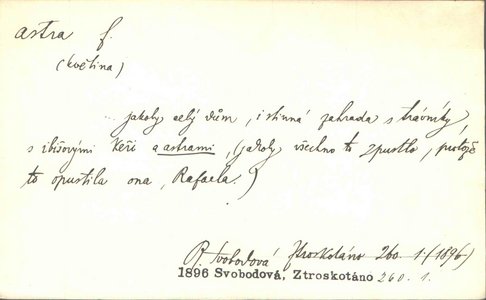 astra f.
(květina)
jakoby celý dům, i stinná zahrada s trávníky,
s ibišovými keři a astrami, (jakoby všechno to zpustlo, protože
to opustila ona, Rafaela.)
R. Svobodová Ztroskotáno 260. 1. (1896)
1896 Svobodová, Ztroskotáno 260. 1.